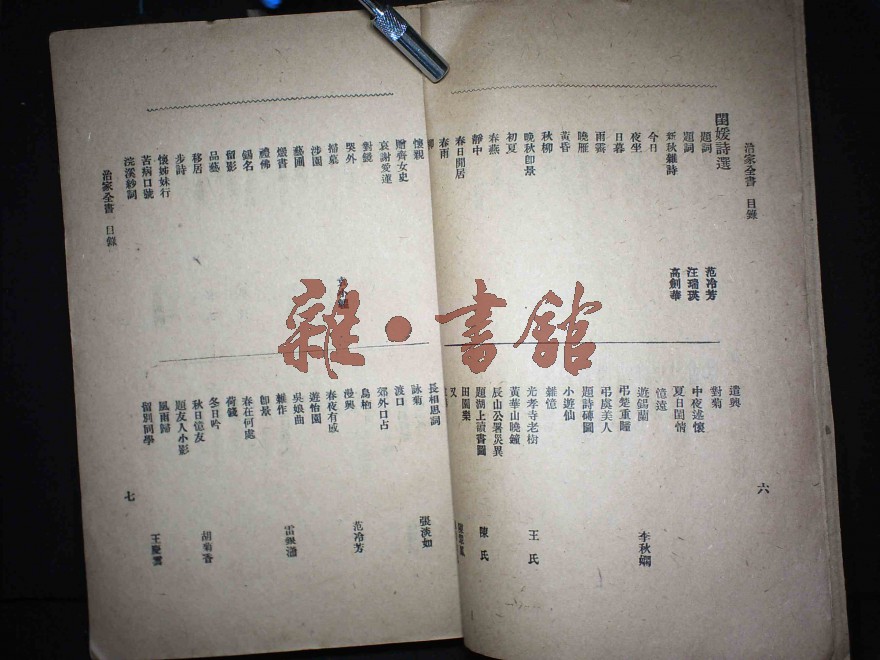 治家全書 目錄
閨媛詩選
題詞 范冷芳
題詞 汪瓊瑛
新秋雜詩 高劍華
今日
夜坐
日暮
雨霽
曉雁
黃昏
秋柳
晚秋卽景
初夏
春燕
靜中
春日閒居
春雨
遣興
對菊
中夜述懷
夏日閨情
憶遠
遊錫蘭 李秋嫻
弔楚重瞳
弔虞美人
題詩磚圖
小遊仙
雜憶
光孝寺老樹 王氏
黃華山曉鐘
辰山公署災異
題湖上讀書圖 陳氏
田園樂
又
六
懷親
贈齊女史
哀謝愛蓮
對鏡
哭外
掃墓
涉園
藝圃
燬書
禮佛
錫名
留影
品藝
移居
步詩
懷姊妹行
苦病口號
浣溪紗詞
長相思詞 張淡如
詠菊
渡口
郊外口占
烏桕
漫興 范冷芳
春夜有感
遊怡園
吳娘曲
雜作 雷
卽景
春在何處
荷錢
冬日吟
秋日憶友 胡菊香
題友人小影
風雨歸 王慶雲
留別同學
治家全書 目錄
七
雜•書館